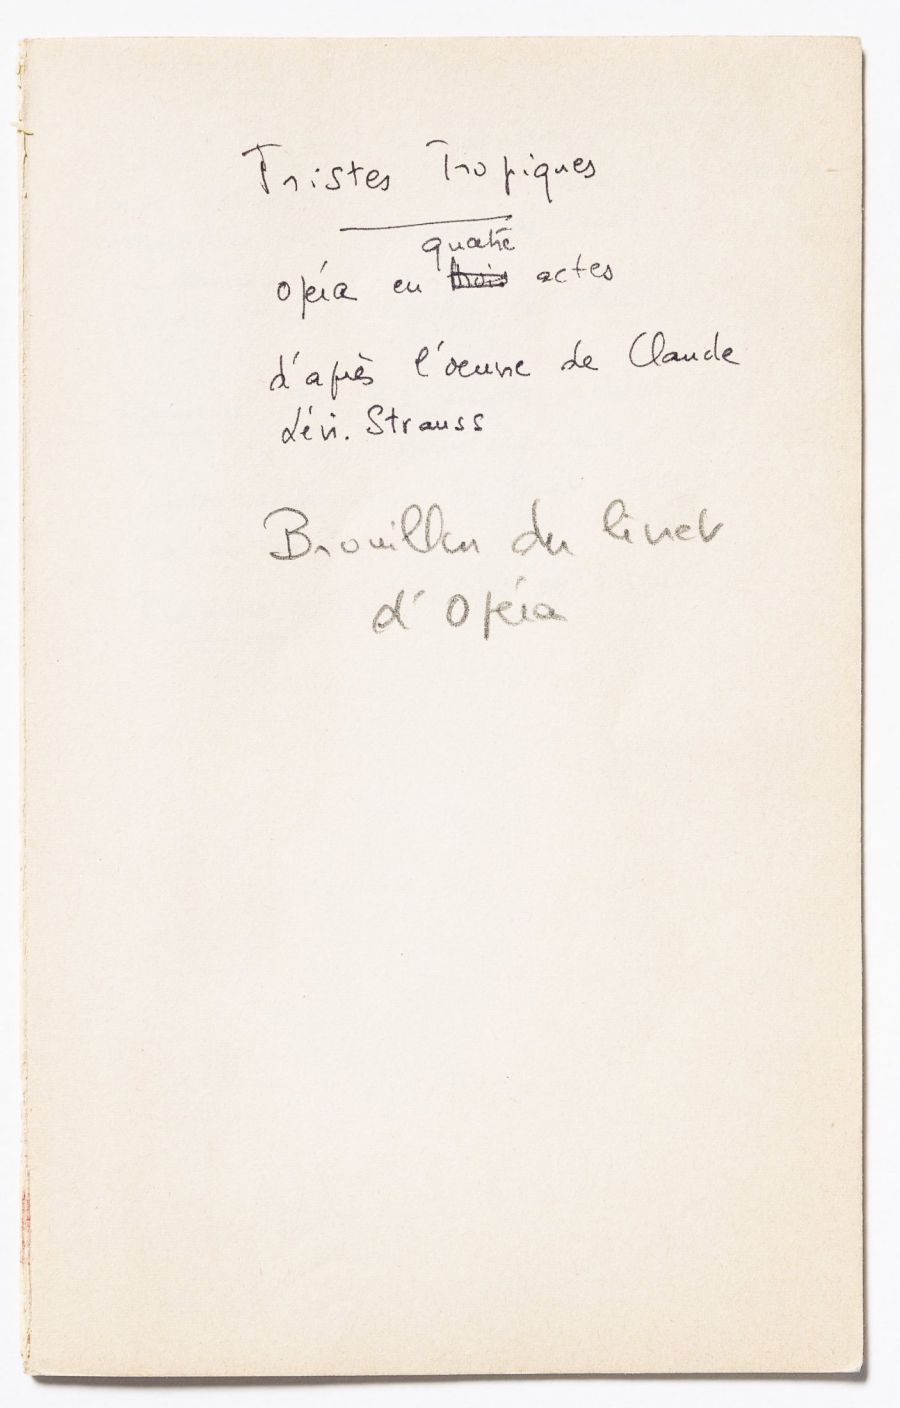 Tristes Tropiques
quatre
opéra en trois actes
d'après l'oeuvre de Claude
Lévi-Strauss
Brouillon du livret
d'Opéra